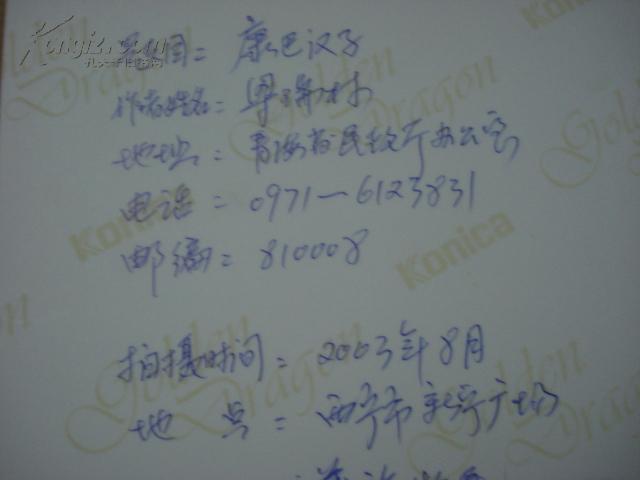 题目：康巴汉子
作者姓名：
地址：青海省民政厅办公室
电话：0971—6123831
邮编：810008
拍摄时间：2003年8月
地点：西宁市新宁广场
Kongfz.com
Konica
Golden Dragon
Konica
Konica
Golden Dragon
Golden Dragon